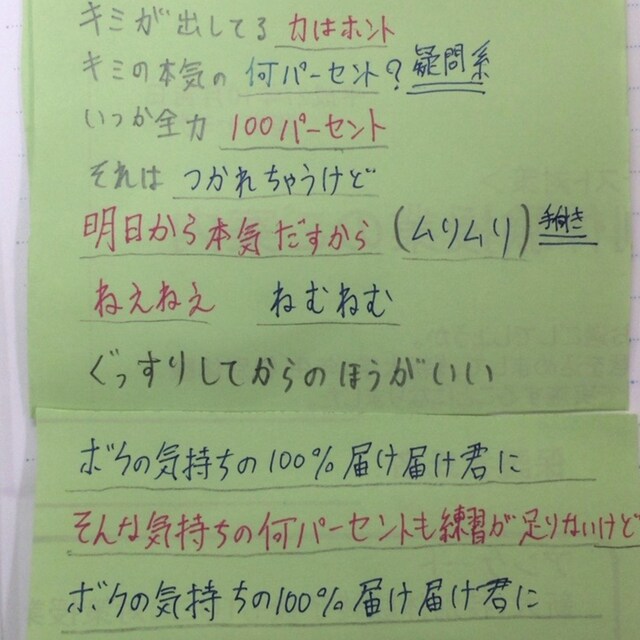 キミが出してる 力はホント
キミの本気の 何パーセント? 疑問系
いつか全力 100パーセント
それは つかれちゃうけど
明日から本気だすから (ムリムリ)
ねえねえ ねむねむ
ぐっすりしてからのほうがいい
ボクの気持ちの100%届け届け君に
そんな気持ちの何パーセントも練習が足りないけど
ボクの気持ちの100%届け届け君に